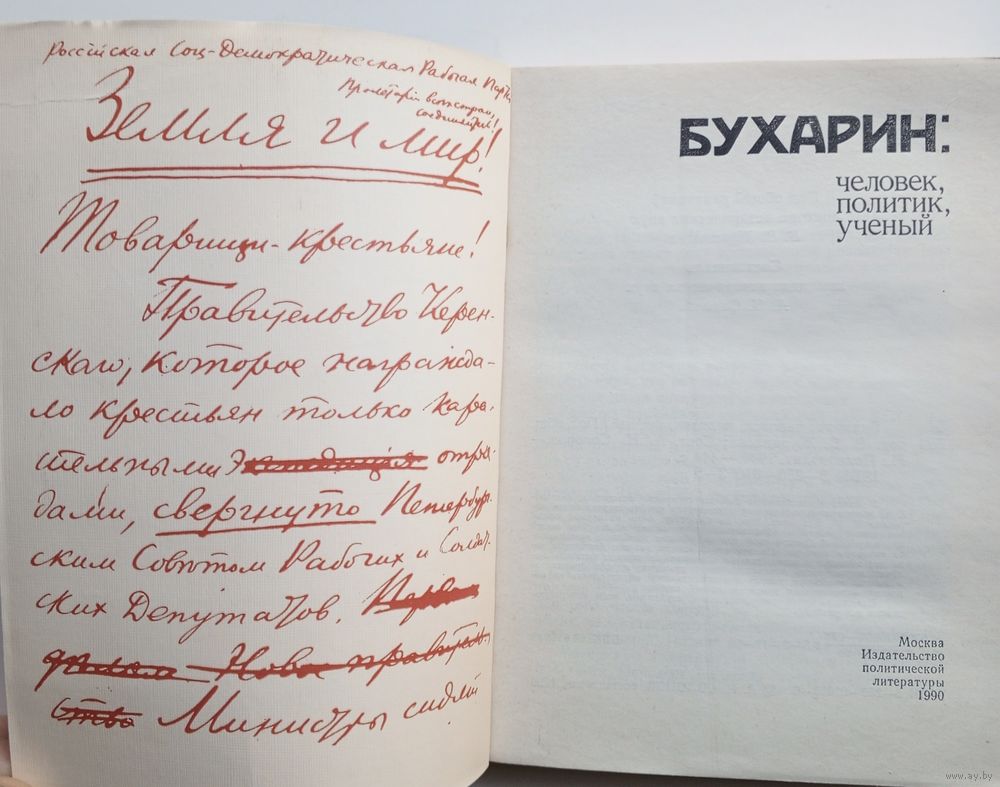 Россійская Соц-Демократическая Рабочая Партія
Пролетаріи всѣх стран,
соединяйтесь!
Земля и мир!
Товарищи-крестьяне!
Правительство Керен-
скаго, которое награжда-
ло крестьян только кара-
тельными экспедиція отря-
дами, свергнуто Петербург-
ским Совѣтом Рабочих и Солдат-
ских Депутатов.
Новое правитель-
ство Министры сидят
БУХАРИН:
человек,
политик,
ученый
Москва
Издательство
политической
литературы
1990
www.ay.by